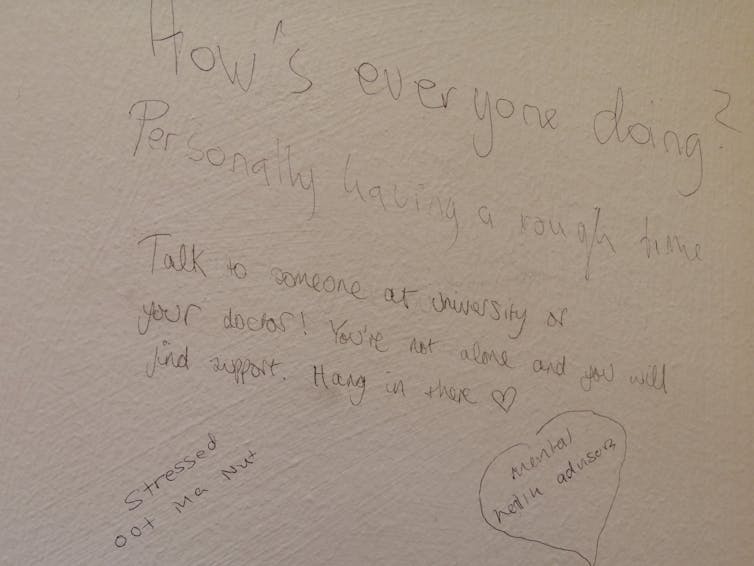 How's everyone doing?
Personally having a rough time
Talk to someone at university or
your doctor! You're not alone and you will
find support. Hang in there ♡
Stressed
oot ma Nut
mental
advisors